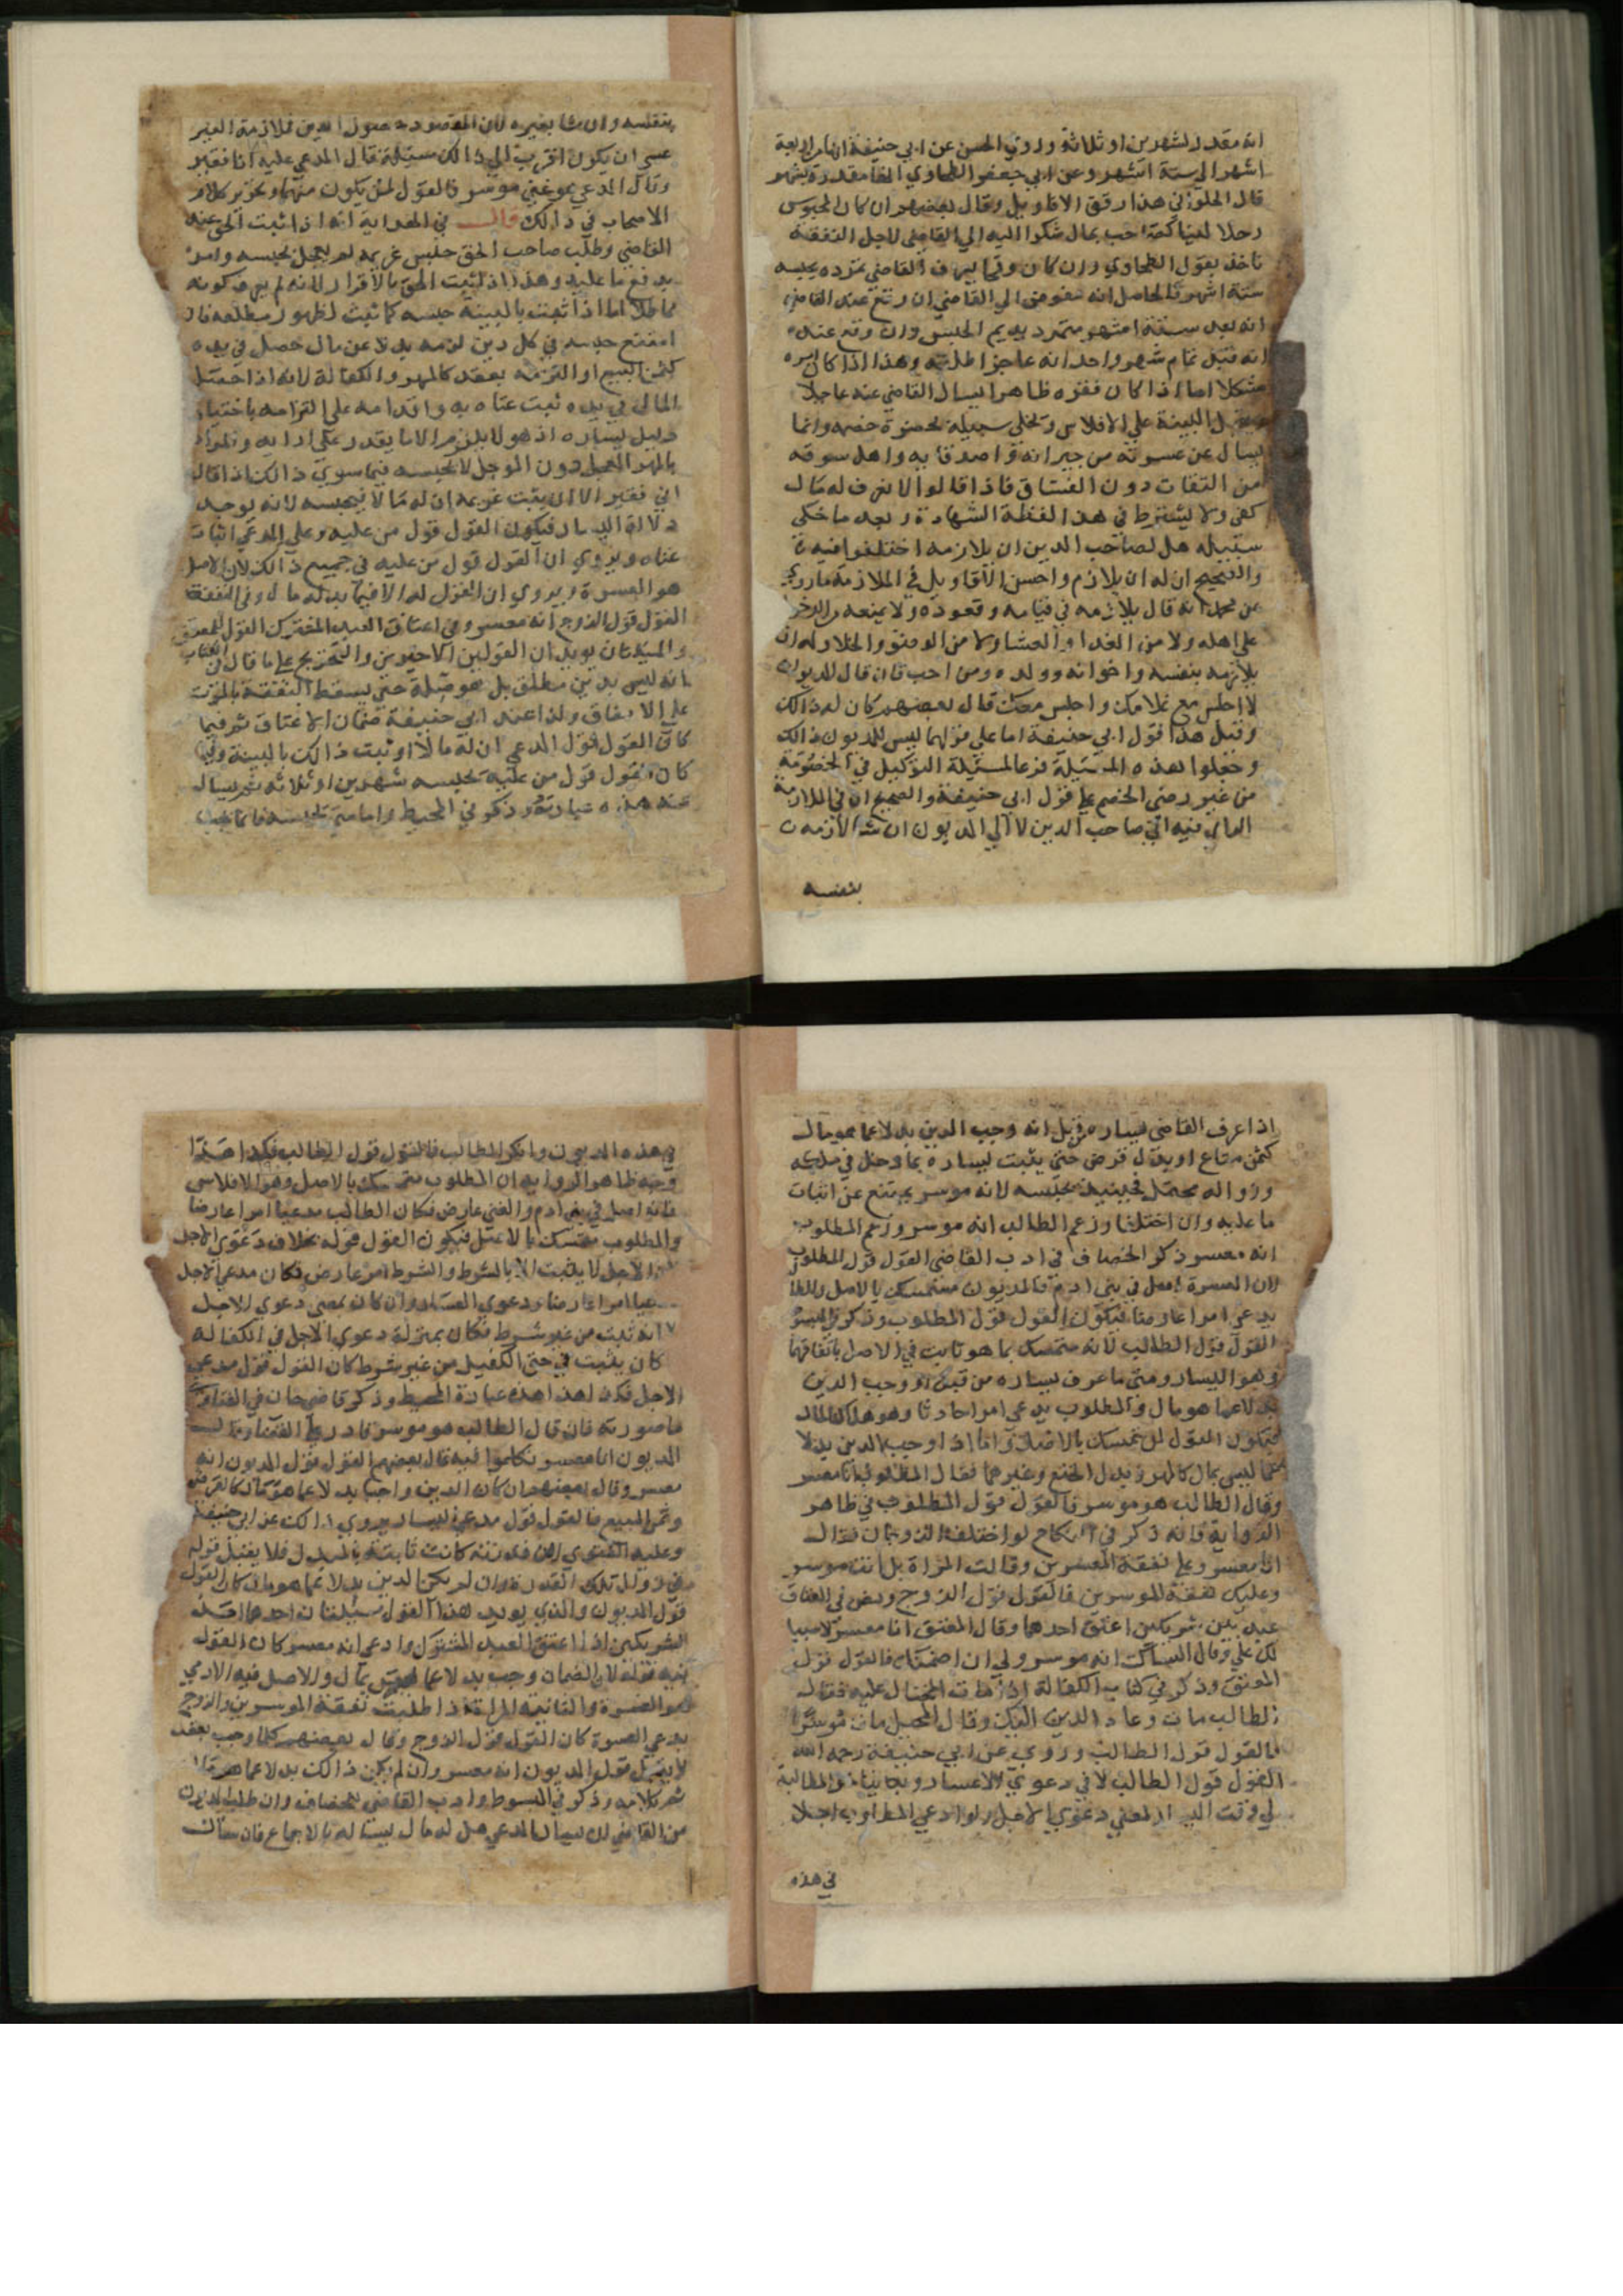 انه مقدر بشهرين او ثلاثة وروي الحسن عن ابي حنيفة انها من اربعة
اشهر الي ستة اشهر وعن ابي جعفر الطحاوي انها مقدرة بشهر
قال الحلواني هذا ارفق الاقاويل وقال بعضهم ان كان المحبوس
رجلا لينا صاحب عيال شكوا اليه الي القاضي لاجل النفقة
ناخذ بقول الطحاوي وان كان وقحا يعرف القاضي تمرده يحبسه
ستة اشهر فالحاصل انه مفوض الي القاضي ان وقع عند القاضي
انه بعد ستة اشهر متمرد يديم الحبس وان وقع عنده
انه قبل تمام شهر واحد انه عاجز اطلقه وهذا اذا كان امره
مشكلا اما اذا كان فقره ظاهرا يسال القاضي عنه عاجلا
ويقبل البينة علي الافلاس ويخلي سبيله بحضرة خصمه وانما
يسال عن عسرته من جيرانه واصدقايه واهل سوقه
من الثقات دون الفساق فاذا قالوا لا نعرف له مال
كفي ولا يشترط في هذا لفظة الشهادة وبعد ما خلي
سبيله هل لصاحب الدين ان يلازمه اختلفوا فيه
والصحيح ان له ان يلازم واحسن الاقاويل في الملازمة ما روي
عن محمد انه قال يلازمه في قيامه وقعوده ولا يمنعه من الدخول
علي اهله ولا من الغدا والعشا ولا من الوضو والخلا وله ان
يلازمه بنفسه واخوانه وولده ومن احب فان قال المديون
لا اجلس مع غلامك واجلس معك قال بعضهم كان له ذالك
وقيل هذا قول ابي حنيفة اما علي قولهما ليس للمديون ذالك
وجعلوا هذه المسئلة فرعا لمسئلة التوكيل في الخصومة
من غير رضي الخصم علي قول ابي حنيفة والصحيح ان في الملازمة
الراي فيه الي صاحب الدين لا الي المديون ان شا لازمه
بنفسه
بنفسه وان شا بغيره لان المقصود حصول الدين فملازمة الغير
عسي ان يكون اقرب الي ذالك مسئلة قال المدعي عليه انا فقير
وقال المدعي هو غني موسر فالقول لمن يكون منهما وتحرير كلام
الاصحاب في ذالك قال في الهداية انه اذا ثبت الحق عند
القاضي وطلب صاحب الحق حبس غريمه لم يعجل بحبسه وامره
بدفع ما عليه وهذا اذا ثبت الحق بالاقرار لانه لم يعرف كونه
مماطلا اما اذا ثبت بالبينة حبسه كما ثبت لظهور مطله فان
امتنع حبسه في كل دين لزمه بدلا عن مال حصل في يده
كثمن المبيع او التزمه بعقد كالمهر والكفالة لانه اذا حصل
المال في يده ثبت غناه به واقدامه علي التزامه باختياره
دليل يساره اذ هو لا يلتزم الا ما يقدر علي ادايه والمراد
بالمهر المعجل دون الموجل لا يحبسه فيما سوي ذالك اذا قال
اني فقير الا ان يثبت غريمه ان له مالا فيحبسه لانه لم يوجد
دلالة اليسار فيكون القول قول من عليه وعلي المدعي اثبات
غناه ويروي ان القول قول من عليه في جميع ذالك لان الاصل
هو العسرة ويروي ان القول له الا فيما بدله مال وفي النفقة
القول قول الزوج انه معسر وفي اعتاق العبد المشترك القول للمعتق
والمسئلتان يويدان القولين الاخيرين والتخريج علي ما قال في الكتاب
انه ليس بدين مطلق بل هو صلة حتي يسقط النفقة بالموت
علي الاتفاق وكذا عند ابي حنيفة ضمان الاعتاق ثم فيما
كان القول قول المدعي ان له مالا او ثبت ذالك بالبينة وفيما
كان القول قول من عليه يحبسه شهرين او ثلاثة ثم يسال
عنه هذه عبارته وذكر في المحيط واما متي يحبسه فانما يحبس
اذا عرف القاضي يساره من قبل انه وجب الدين بدلا عما هو مال
كثمن متاع او بدل قرض حتي يثبت يساره بما دخل في ملكه
وزواله محتمل فحينيذ يحبسه لانه موسر يمتنع عن اثبات
ما عليه وان اختلفا وزعم الطالب انه موسر وزعم المطلوب
انه معسر ذكر الخصاف في ادب القاضي القول قول المطلوب
لان العسرة اصل في بني ادم فالمديون متمسك بالاصل والطالب
يدعي امرا عارضا فيكون القول قول المطلوب وذكر في المبسوط
القول قول الطالب لانه متمسك بما هو ثابت في الاصل باتفاقهما
وهو اليسار ومتي ما عرف يساره من قبل او وجب الدين
بدلا عما هو مال والمطلوب يدعي امرا حادثا وهو هلاك المال
فيكون القول لمن تمسك بالاصل واما اذا وجب الدين بدلا
عما ليس بمال كالمهر وبدل الخلع وغيرهما فقال المطلوب انا معسر
وقال الطالب هو موسر فالقول قول المطلوب في ظاهر
الرواية فانه ذكر في النكاح لو اختلف الزوجان فقال
انا معسر وعلي نفقة المعسرين وقالت المراة بل انت موسر
وعليك نفقة الموسرين فالقول قول الزوج ونص في العتاق
عبد بين شريكين اعتق احدهما وقال المعتق انا معسر لا سبيل
لك علي وقال الساكت انه موسر ولي ان اضمنك فالقول قول
المعتق وذكر في كتاب الكفالة اذا مات المحتال عليه فقال
الطالب مات وعاد الدين اليك وقال المحيل مات موسرا
فالقول قول الطالب وروي عن ابي حنيفة رحمه الله
القول قول الطالب لا في دعوي الاعسار
في هذه
في هذه المديون وانكر الطالب فالقول قول الطالب فكذا هذا
وجه ظاهر الرواية ان المطلوب متمسك بالاصل وهو الافلاس
فانه اصل في بني ادم والغني عارض فكان الطالب مدعيا امرا عارضا
والمطلوب متمسك بالاصل فيكون القول قوله بخلاف دعوي الاجل
لان الاجل لا يثبت الا بالشرط والشرط امر عارض فكان مدعي الاجل
مدعيا امرا عارضا ودعوي العسار وان كان بمعني دعوي الاجل
لانه ثبت من غير شرط فكان بمنزلة دعوي الاجل في الكفالة
كان يثبت في حق الكفيل من غير شرط كان القول قول مدعي
الاجل فكذا هذا هذه عبارة المحيط وذكر قاضي خان في الفتاوي
ما صورته فان قال الطالب هو موسر قادر علي القضا وقال
المديون انا معسر تكلموا فيه قال بعضهم القول قول المديون انه
معسر وقال بعضهم ان كان الدين واجبا بدلا عما هو مال كالقرض
وثمن المبيع فالقول قول مدعي اليسار يروي ذالك عن ابي حنيفة
وعليه الفتوي لان قدرته كانت ثابتة بالمبدل فلا يقبل قوله
في زوال تلك القدرة وان لم يكن الدين بدلا عما هو مال كان القول
قول المديون والذي يويد هذا القول مسئلتان احدهما احد
الشريكين اذا اعتق العبد المشترك وادعي انه معسر كان القول
فيه قوله لان الضمان وجب بدلا عما ليس بمال والاصل فيه الادمي
هو العسرة والثانية المراة اذا طلبت نفقة الموسرين والزوج
يدعي العسرة كان القول قول الزوج وقال بعضهم كلما وجب بعقد
لا يقبل قول المديون انه معسر وان لم يكن ذالك بدلا عما هو مال
تم كلامه وذكر في المبسوط وادب القاضي للخصاف وان طلب المديون
من القاضي ان يسال المدعي هل له مال يساله بالاجماع فان سال